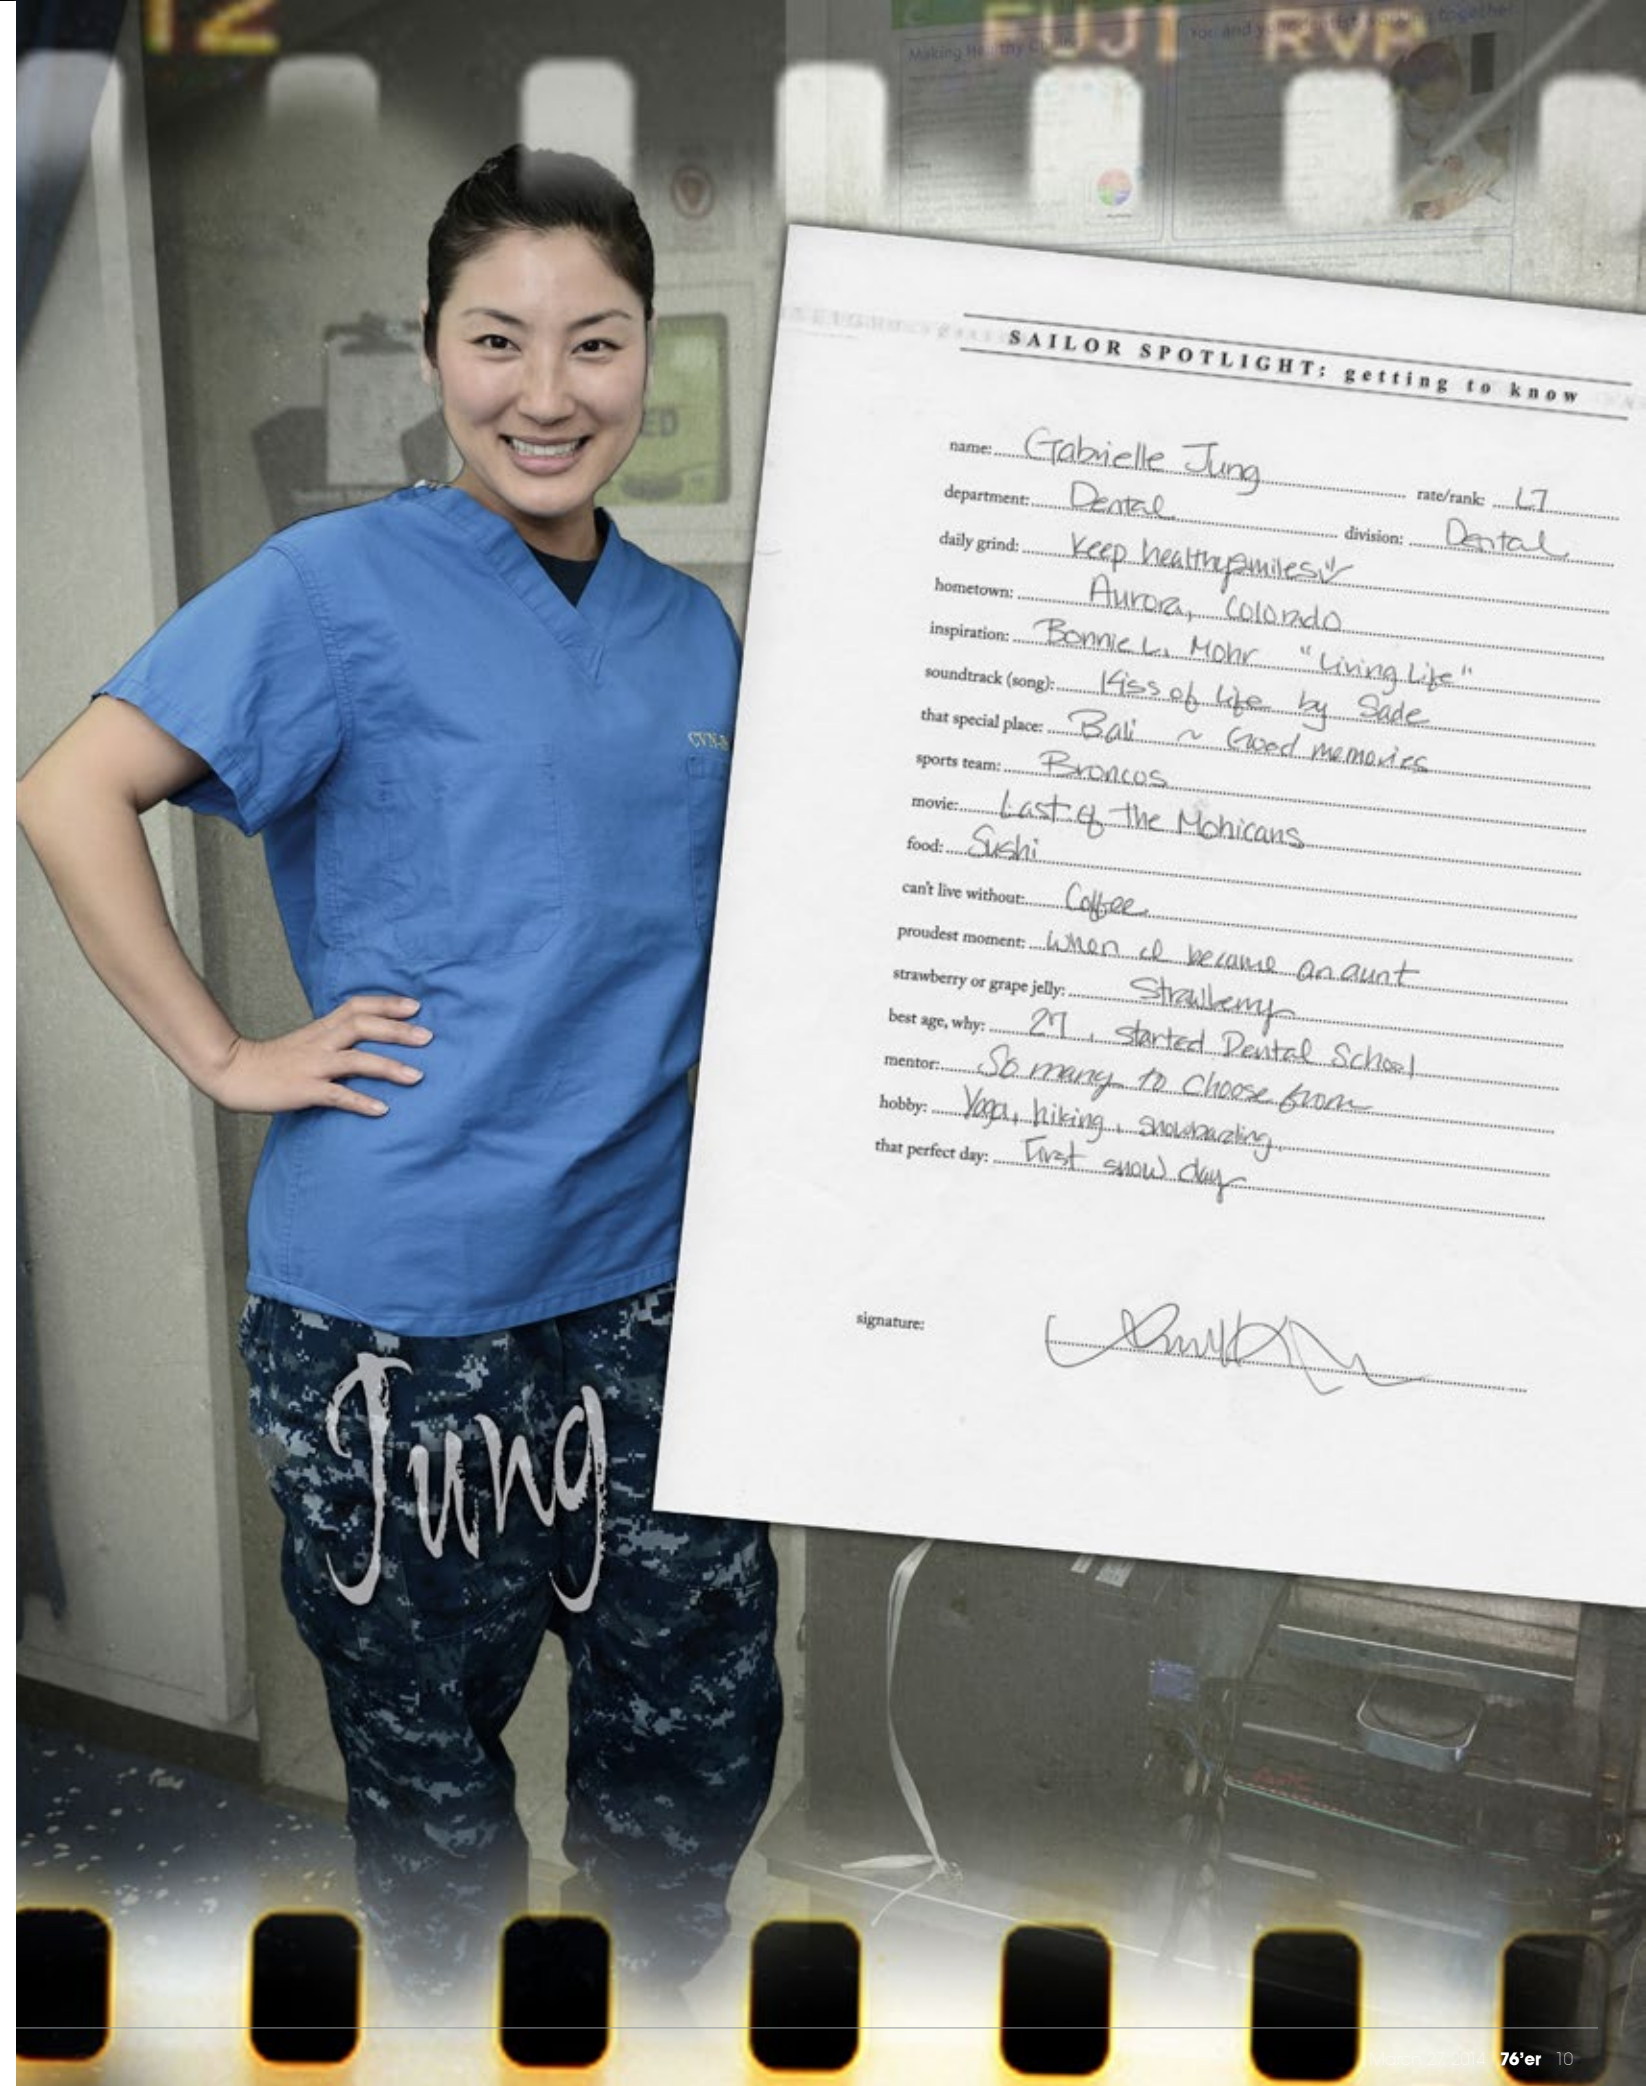 12
FUJI RVP
Making Healthy
You and your dentist working together
ED
CVN-
SAILOR SPOTLIGHT: getting to know
name: Gabrielle Jung rate/rank: LT
department: Dental division: Dental
daily grind: Keep healthy smiles
hometown: Aurora, Colorado
inspiration: Bonnie L. Mohr "Living Life"
soundtrack (song): Kiss of life by Sade
that special place: Bali ~ Good memories
sports team: Broncos
movie: Last of the Mohicans
food: Sushi
can't live without: Coffee
proudest moment: When I became an aunt
strawberry or grape jelly: Strawberry
best age, why: 27, started Dental School
mentor: So many to choose from
hobby: Yoga, hiking, snowboarding
that perfect day: First snow day
signature:
Jung
76'er 10